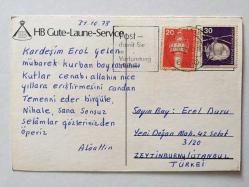 31.10.78
HB Gute-Laune-Service
Post-
damit Sie
in
Verbindung
20
30
Kardeşim Erol gelen
mübarek kurban bayramını
Kutlar cenabı allahın nice
yıllara eriştirmesini candan
Temenni eder birgüle,
Nihale, sana sonsuz
selâmlar gözlerinizden
öperiz
Alâattin
Sayın Bay: Erol Duru
Yeni Doğan Mah. 42 Sokat
3/20
ZEYTİNBURNU/İSTANBUL
TÜRKEİ